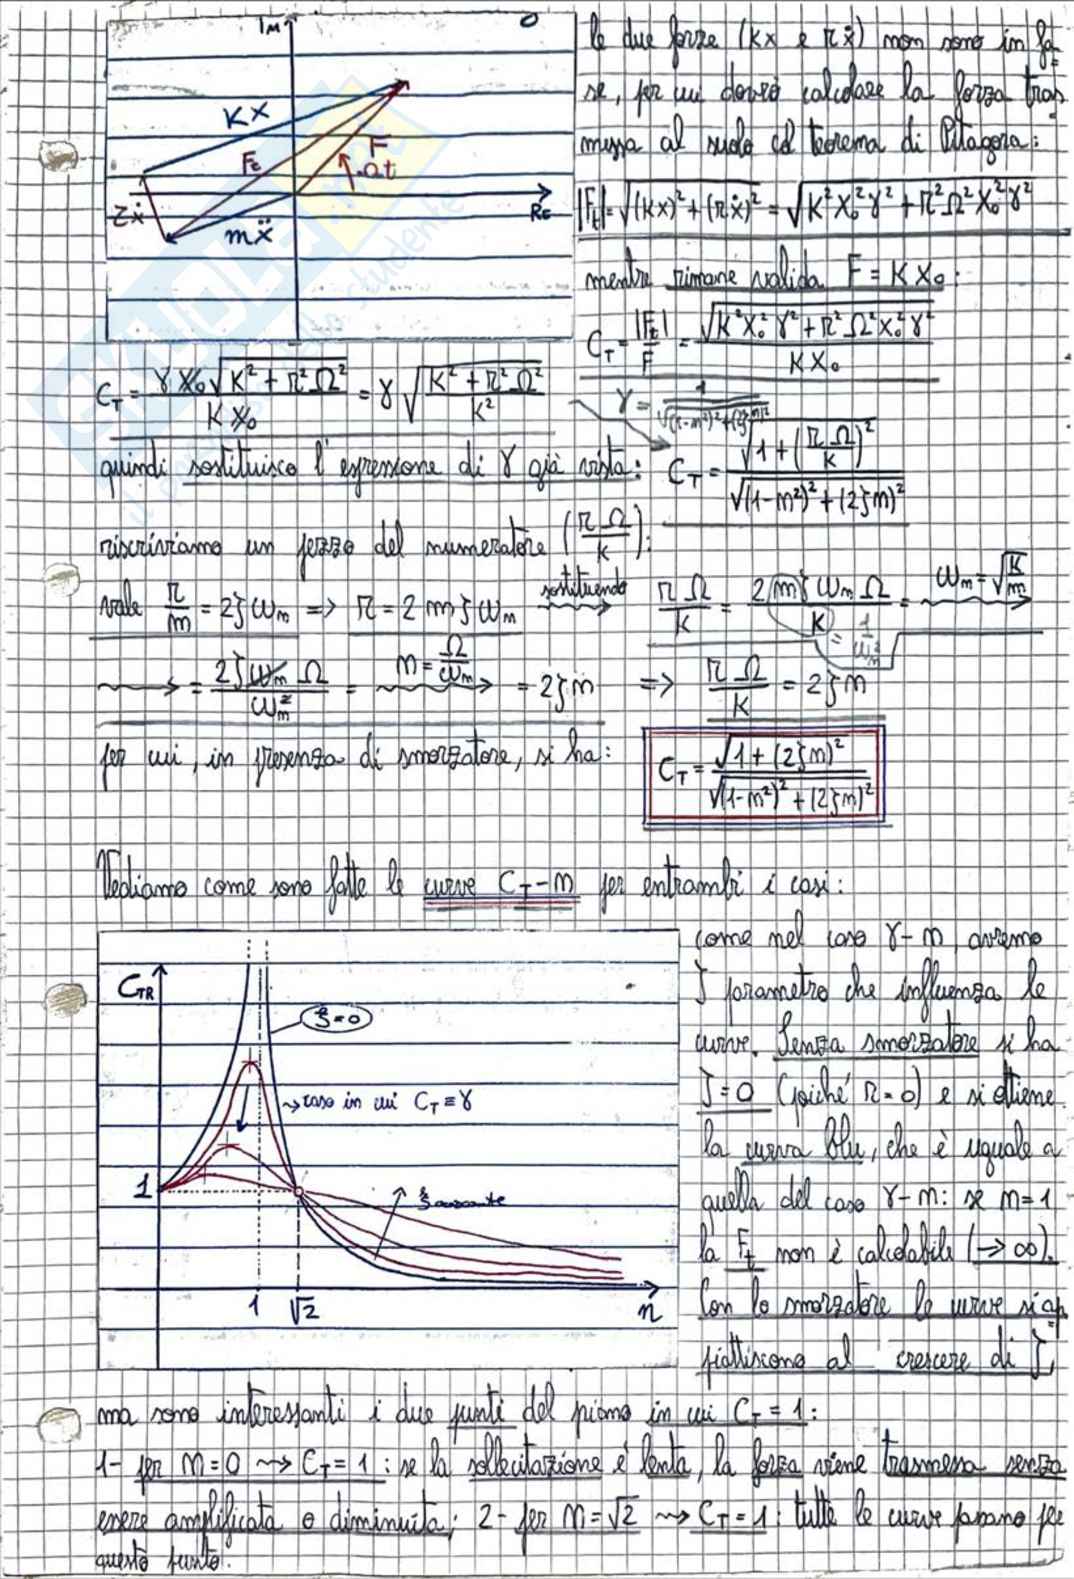 Im
Kx
F
Ft
Ωt
rẋ
mẍ
Re
le due forze (Kx e rẋ) non sono in fa=
se, per cui dovrò calcolare la forza tras
messa al suolo col teorema di Pitagora:
|Ft| = √(Kx)² + (rẋ)² = √K²X₀²γ² + r²Ω²X₀²γ²
mentre rimane valida F = K X₀:
CT = |Ft|/F = √K²X₀²γ² + r²Ω²X₀²γ² / K X₀
CT = γ X₀ √K² + r²Ω² / K X₀ = γ √(K² + r²Ω² / K²)
γ = 1/√(1-n²)²+(2ζn)²
quindi sostituisco l'espressione di γ già vista:
CT = √1 + (rΩ/k)² / √(1-n²)² + (2ζn)²
riscriviamo un pezzo del numeratore (rΩ/k):
vale r/m = 2ζωn => r = 2mζωn sostituendo rΩ/k = 2mζωnΩ/k = ωn = √k/m
= 1/ωn²
= 2ζωnΩ/ωn² = n = Ω/ωn = 2ζn => rΩ/k = 2ζn
per cui, in presenza di smorzatore, si ha:
CT = √1 + (2ζn)² / √(1-n²)² + (2ζn)²
Vediamo come sono fatte le curve CT-n per entrambi i casi:
CTR
ξ=0
→ caso in cui CT ≡ γ
1
ξ crescente
1
√2
n
come nel caso γ-n, avremo
ζ parametro che influenza le
curve. Senza smorzatore si ha
ζ=0 (poiché r=0) e si ottiene
la curva blu, che è uguale a
quella del caso γ-n: se n=1
la Ft non è calcolabile (→∞).
Con lo smorzatore le curve si ap
piattiscono al crescere di ζ,
ma sono interessanti i due punti del piano in cui CT = 1:
1- per n=0 ⇝ CT = 1: se la sollecitazione è lenta, la forza viene trasmessa senza
essere amplificata o diminuita; 2- per n=√2 ⇝ CT=1: tutte le curve passano per
questo punto.